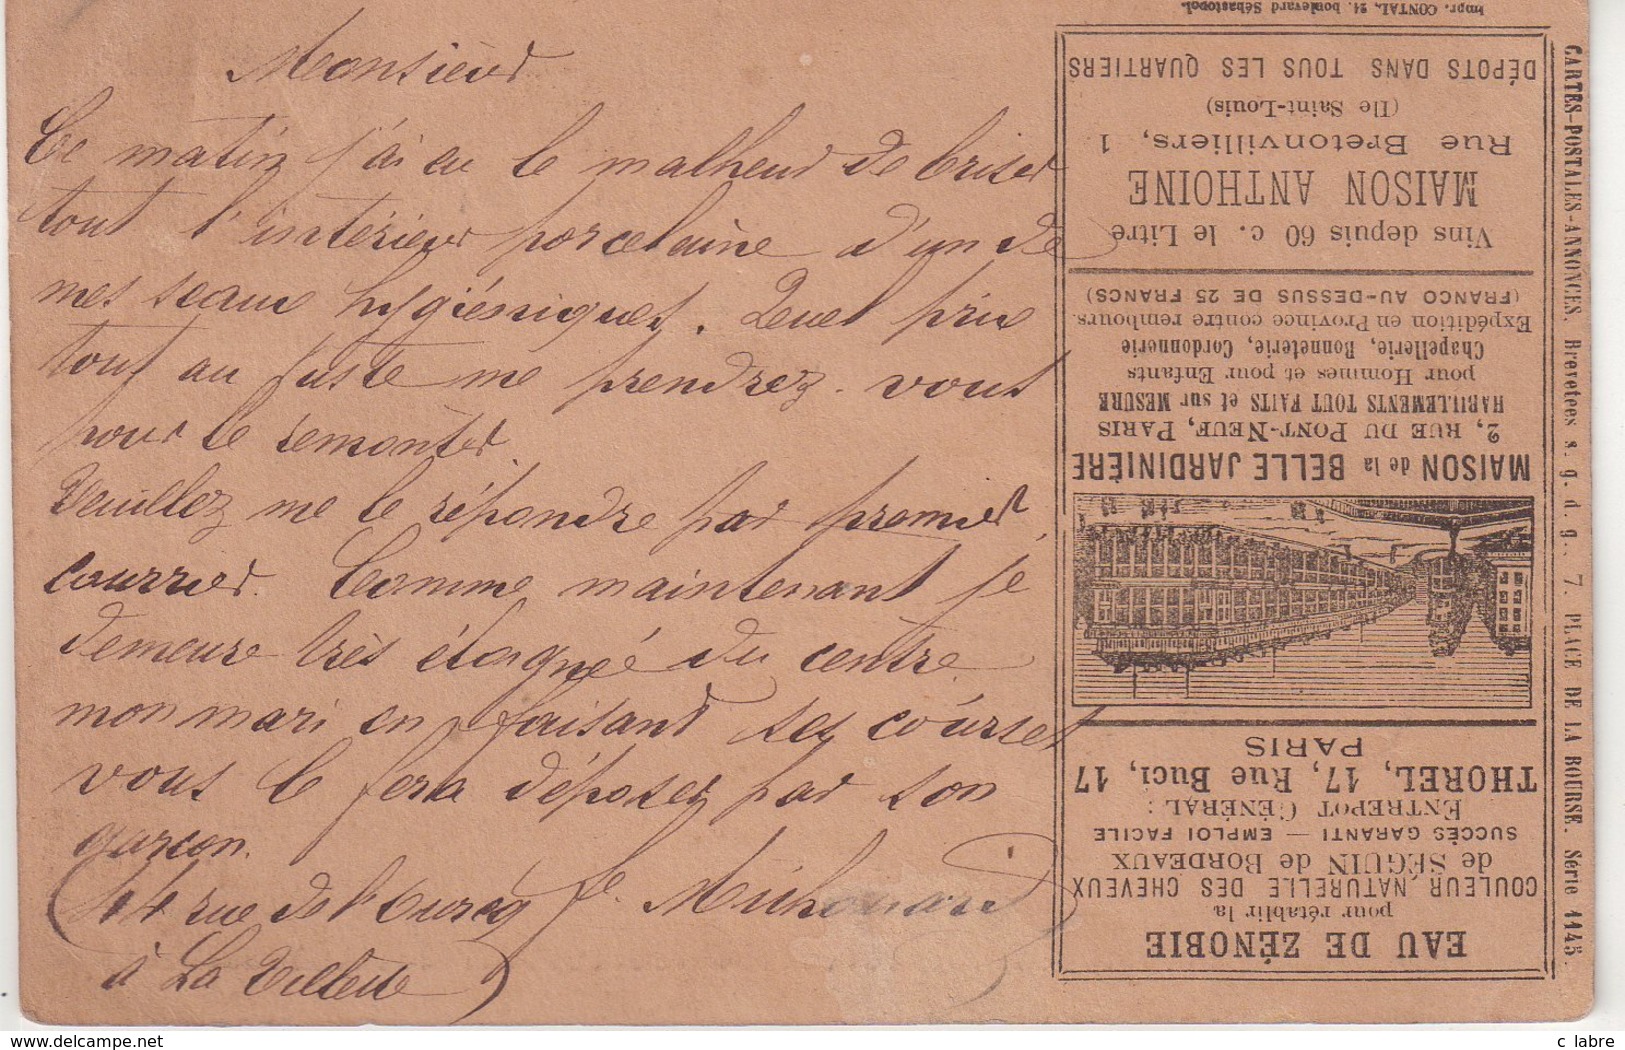 Monsieur
Ce matin j'ai eu le malheur de briser
tout l'intérieur porcelaine d'un de
mes seaux hygiéniques. Quel prix
tout au juste me prendrez-vous
pour le remonter.
Veuillez me le répondre par premier
courrier. Comme maintenant je
demeure très éloignée du centre
mon mari en faisant ses courses
vous le fera déposer par son
garçon.
44 rue de l'Ourcq
à La Villette
EAU DE ZÉNOBIE
pour rétablir la
COULEUR NATURELLE DES CHEVEUX
de SÉGUIN de BORDEAUX
SUCCÈS GARANTI — EMPLOI FACILE
ENTREPOT GÉNÉRAL :
THOREL, 17, RUE BUCI, 17
PARIS
MAISON de la BELLE JARDINIÈRE
2, RUE DU PONT-NEUF, PARIS
HABILLEMENTS TOUT FAITS et sur MESURE
pour Hommes et pour Enfants
Chapellerie, Bonneterie, Cordonnerie
Expédition en Province contre rembours.
(FRANCO AU-DESSUS DE 25 FRANCS)
Vins depuis 60 c. le Litre
MAISON ANTHOINE
Rue Bretonvilliers, 1
(Ile Saint-Louis)
DÉPOTS DANS TOUS LES QUARTIERS
Impr. CONTAL, 21, boulevard Sébastopol.
CARTES-POSTALES-ANNONCES. Brevetées s. g. d. g., 7, PLACE DE LA BOURSE. Série 1145.
www.delcampe.net
c labre